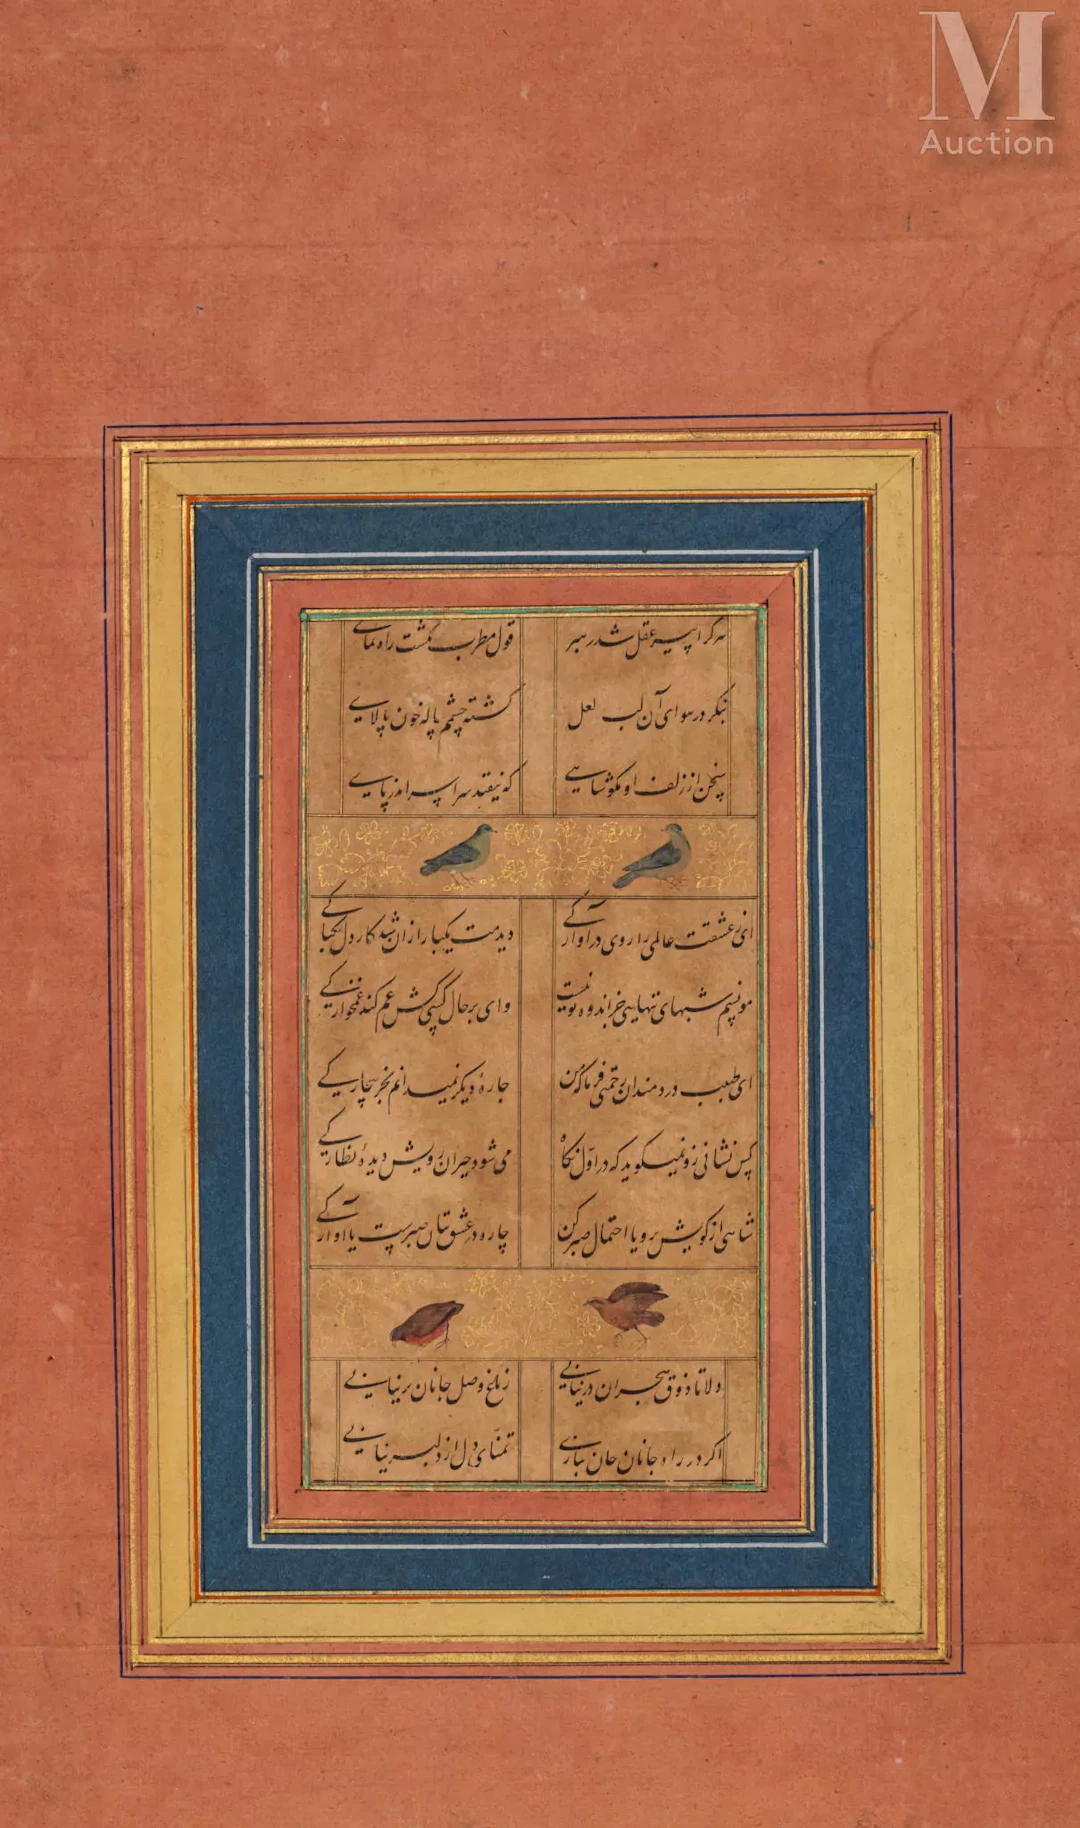 M
Auction
هر کرا پیر عقل شد رهبر قول مطرب نگشت راه نمای
بنگر در هوای آن لب لعل گشته چشم پاله خون پالای
سخن از زلف او مگو شاهی که نیفتد سر اسر اندر پای
ای ز عشقت عالمی را روی در آوارکی دیدمت یکبار از ان شد کار دل یکبارکی
مونسم شبهای تنهایی جز اندوه تو نیست وای بر حال کسی کش غم کند غمخوارکی
ای طبیب دردمندان رحمتی فرما که من چارهٔ دیگر نمیدانم بجز بیچارکی
کس نشانی زو نمیگوید که در اوّل نگاه می شود حیران رویش دیدهٔ نظارکی
شاهی از کویش برو یا احتمال صبر کن چاره در عشق بتان صبرست یا آوارکی
دلا تا ذوق هجران در نیابی ز نخل وصل جانان بر نیابی
اگر در راه جانان جان نبازی تمنّای دل از دلبر نیابی